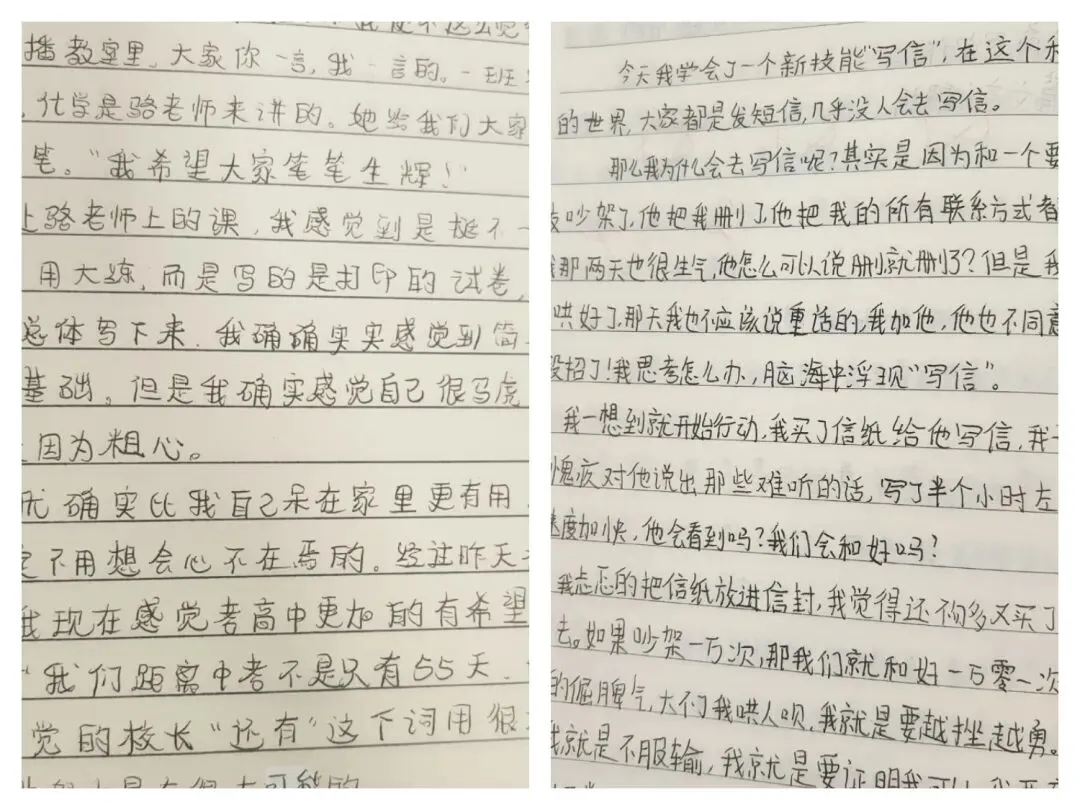 播教室里,大家你一言,我一言的。一班
化学是骆老师来讲的。她给我们大家
笔。“我希望大家笔笔生辉!”
上骆老师上的课,我感觉到是挺不一
用大练,而是写的是打印的试卷,
总体写下来,我确确实实感觉到简
基础。但是我确实感觉自己很马虎
因为粗心。
确实比我自己呆在家里更有用
不用想会心不在焉的。经过昨天
我现在感觉考高中更加的有希望
“我们距离中考不是只有55天.
觉的校长“还有”这下词用很
可能的
今天我学会了一个新技能“写信”,在这个
的世界,大家都是发短信,几乎没人会去写信。
那么我为什么会去写信呢?其实是因为和一个要
吵架了,他把我删了,他把我的所有联系方式者
那两天也很生气,他怎么可以说删就删了?但是我
哄好了,那天我也不应该说重话的,我加他,他也不同意
没招了!我思考怎么办,脑海中浮现“写信”。
我一想到就开始行动,我买了信纸给他写信,我一
愧疚对他说出那些难听的话,写了半个小时左
速度加快,他会看到吗?我们会和好吗?
我忐忑的把信纸放进信封,我觉得还不够多又买了
去。如果吵架一万次,那我们就和好一万零一次
的倔脾气,大不了我哄人呗,我就是要越挫越勇。
我就是不服输,我就是要证明我可以